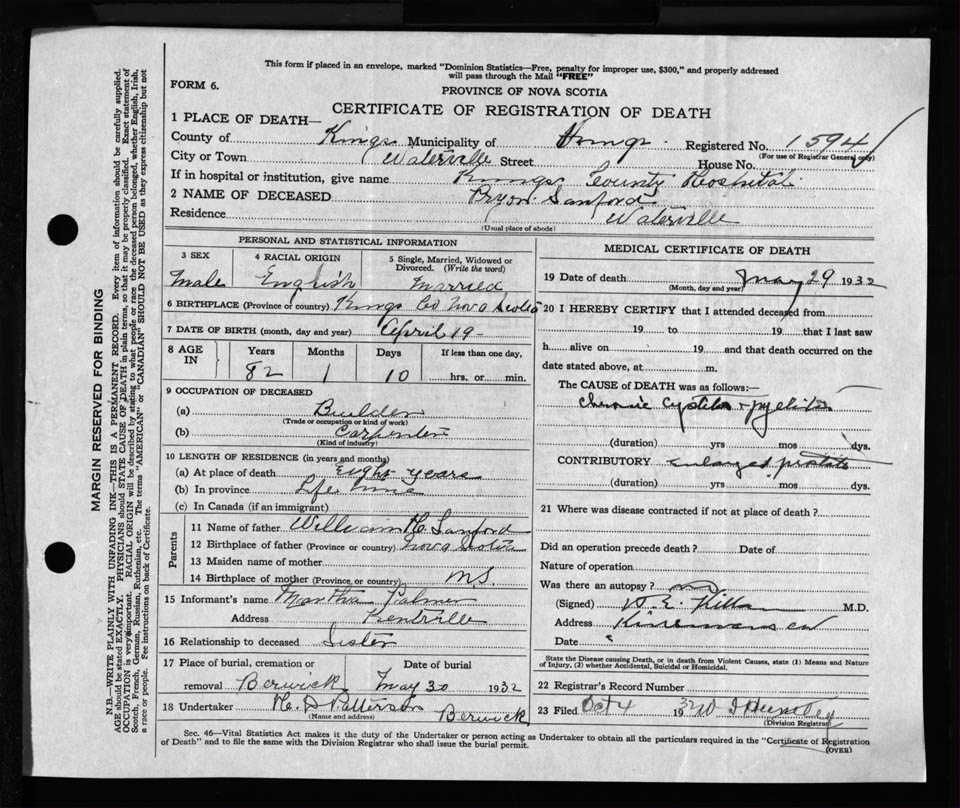 This form if placed in an envelope, marked "Dominion Statistics—Free, penalty for improper use, $300," and properly addressed
will pass through the Mail "FREE"
FORM 6.
PROVINCE OF NOVA SCOTIA
CERTIFICATE OF REGISTRATION OF DEATH
1 PLACE OF DEATH—
County of Kings Municipality of Kings Registered No. 1594
City or Town Waterville Street House No. (For use of Registrar General only)
If in hospital or institution, give name Kings County Hospital
2 NAME OF DECEASED Bryon Sanford
Residence Waterville
(Usual place of abode)
PERSONAL AND STATISTICAL INFORMATION
3 SEX 4 RACIAL ORIGIN 5 Single, Married, Widowed or
Divorced. (Write the word)
Male English Married
6 BIRTHPLACE (Province or country) Kings Co Nova Scotia
7 DATE OF BIRTH (month, day and year) April 19-
8 AGE IN Years Months Days If less than one day,
82 1 10 hrs. or min.
9 OCCUPATION OF DECEASED
(a) Builder
(Trade or occupation or kind of work)
(b) Carpenter
(Kind of industry)
10 LENGTH OF RESIDENCE (in years and months)
(a) At place of death Eight years
(b) In province Life time
(c) In Canada (if an immigrant)
Parents
11 Name of father William H. Sanford
12 Birthplace of father (Province or country) Nova Scotia
13 Maiden name of mother
14 Birthplace of mother (Province or country) N.S.
15 Informant's name Martha Palmer
Address Kentville
16 Relationship to deceased Sister
17 Place of burial, cremation or Date of burial
removal Berwick May 30 1932
18 Undertaker H. D Patterson
(Name and address) Berwick
MEDICAL CERTIFICATE OF DEATH
19 Date of death May 29 1932
(Month, day and year)
20 I HEREBY CERTIFY that I attended deceased from
19 to 19 that I last saw
h alive on 19 and that death occurred on the
date stated above, at m.
The CAUSE of DEATH was as follows:—
Chronic Cystitis + pyelitis
(duration) yrs mos dys.
CONTRIBUTORY enlarged prostate
(duration) yrs mos dys.
21 Where was disease contracted if not at place of death?
Did an operation precede death? Date of
Nature of operation
Was there an autopsy? no
(Signed) M.D.
Address
Date
State the Disease causing Death, or in death from Violent Causes, state (1) Means and Nature
of Injury, (2) whether Accidental, Suicidal or Homicidal.
22 Registrar's Record Number
23 Filed Oct 4 1932
(Division Registrar)
Sec. 46—Vital Statistics Act makes it the duty of the Undertaker or person acting as Undertaker to obtain all the particulars required in the "Certificate of Registration
of Death" and to file the same with the Division Registrar who shall issue the burial permit.
(OVER)
MARGIN RESERVED FOR BINDING
N.B.—WRITE PLAINLY WITH UNFADING INK—THIS IS A PERMANENT RECORD. Every item of information should be carefully supplied.
AGE should be stated EXACTLY. PHYSICIANS should STATE CAUSE OF DEATH in plain terms, so that it may be properly classified. Exact statement of
OCCUPATION is very important. RACIAL ORIGIN will be described by stating to what people or race the deceased person belonged, whether English, Irish,
Scotch, French, German, Russian, Ruthenian, etc. The terms "AMERICAN" or "CANADIAN" SHOULD NOT BE USED as they express citizenship but not
a race or people. See instructions on back of Certificate.